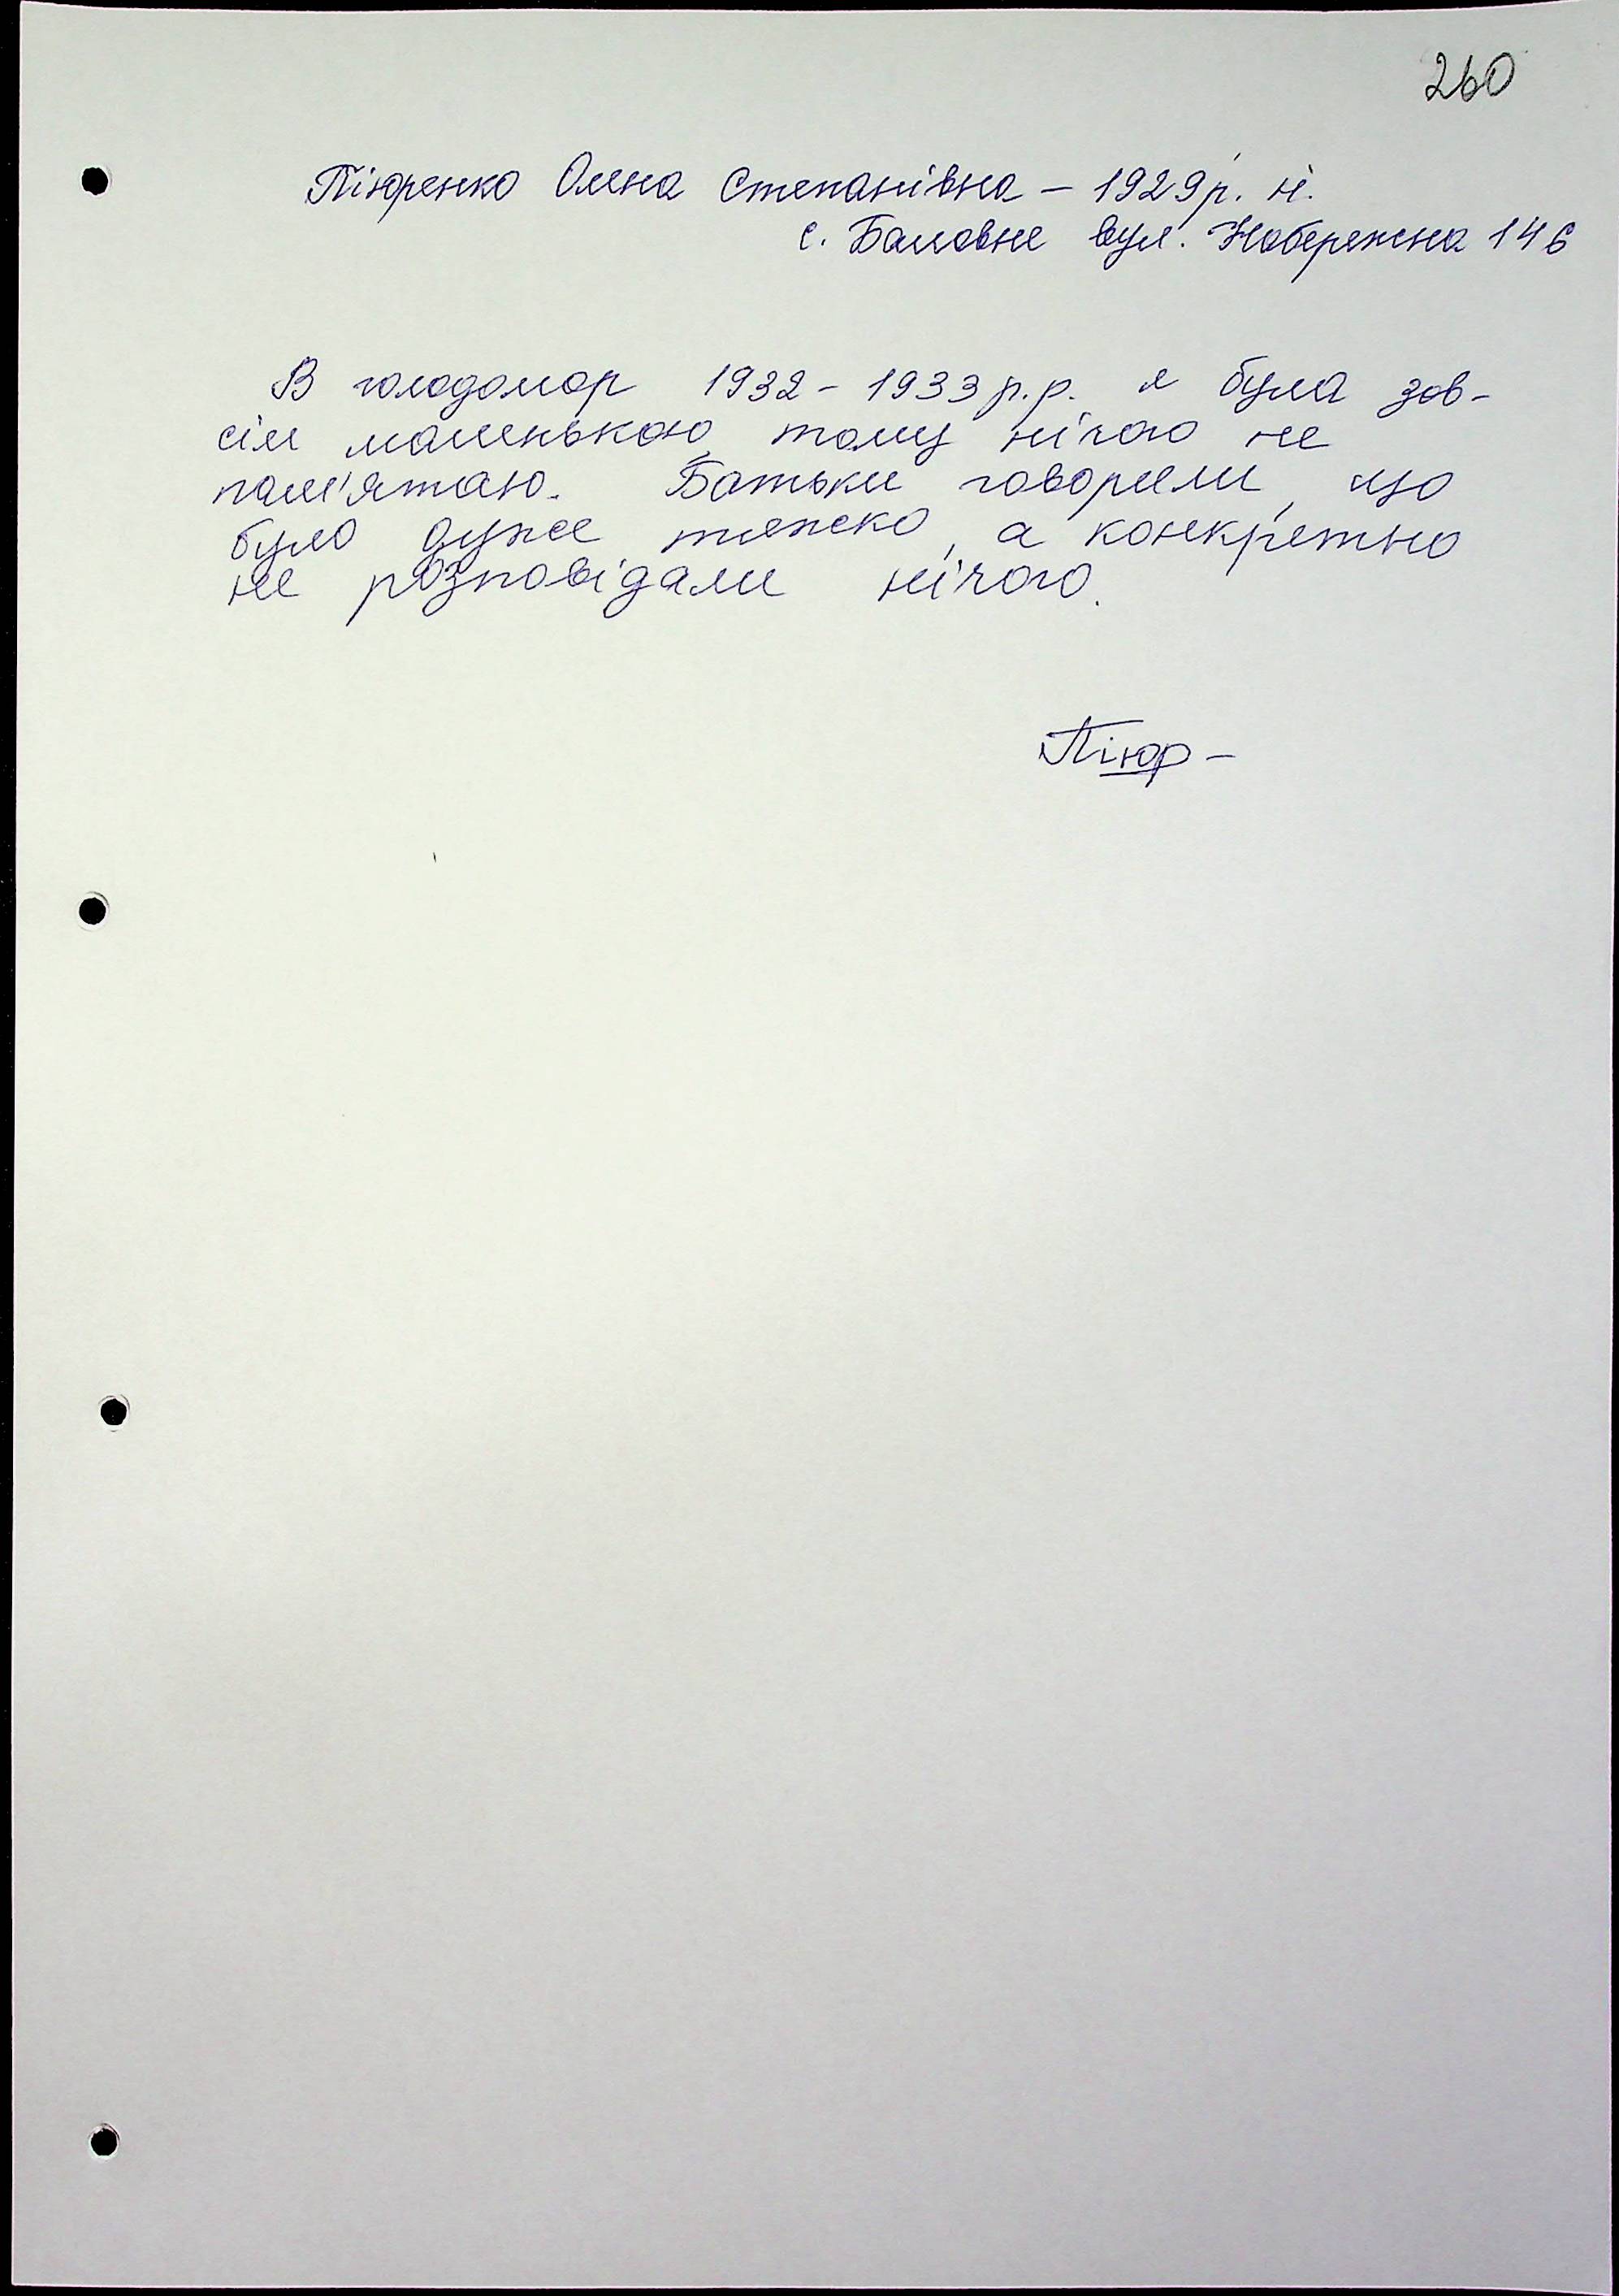 260
Піюренко Олена Степанівна – 1929 р. н.
с. Баловне вул. Набережна 146
В голодомор 1932 – 1933 р.р. я була зов-
сім маленькою, тому нічого не
пам'ятаю. Батьки говорили, що
було дуже тяжко, а конкретно
не розповідали нічого.
Піюр –